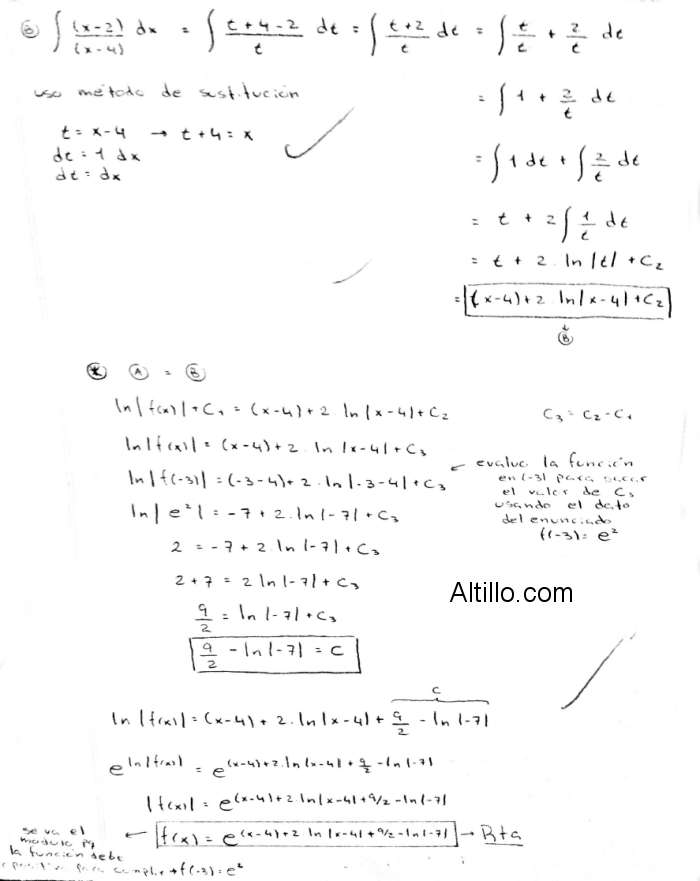 ⑥ ∫ (x-2)/(x-4) dx = ∫ (t+4-2)/t dt = ∫ (t+2)/t dt = ∫ t/t + 2/t dt
uso método de sustitución
= ∫ 1 + 2/t dt
t = x-4 → t+4 = x
dt = 1 dx
dt = dx
= ∫ 1 dt + ∫ 2/t dt
= t + 2 ∫ 1/t dt
= t + 2 . ln |t| + C₂
= (x-4) + 2 . ln |x-4| + C₂
Ⓑ
Ⓐ = Ⓑ
ln |f(x)| + C₁ = (x-4) + 2 ln |x-4| + C₂
C₃ = C₂ - C₁
ln |f(x)| = (x-4) + 2 . ln |x-4| + C₃
ln |f(-3)| = (-3-4) + 2 . ln |-3-4| + C₃
← evaluo la función
en (-3) para sacar
el valor de C₃
usando el dato
del enunciado
f(-3) = e²
ln |e²| = -7 + 2 . ln |-7| + C₃
2 = -7 + 2 ln |-7| + C₃
2 + 7 = 2 ln |-7| + C₃
Altillo.com
9/2 = ln |-7| + C₃
9/2 - ln |-7| = C
C
ln |f(x)| = (x-4) + 2 . ln |x-4| + 9/2 - ln |-7|
e^(ln |f(x)|) = e^((x-4) + 2 . ln |x-4| + 9/2 - ln |-7|)
|f(x)| = e^((x-4) + 2 ln |x-4| + 9/2 - ln |-7|)
f(x) = e^((x-4) + 2 ln |x-4| + 9/2 - ln |-7|) → Rta
se va el
modulo pq
la función debe
positiva para cumplir f(-3) = e²